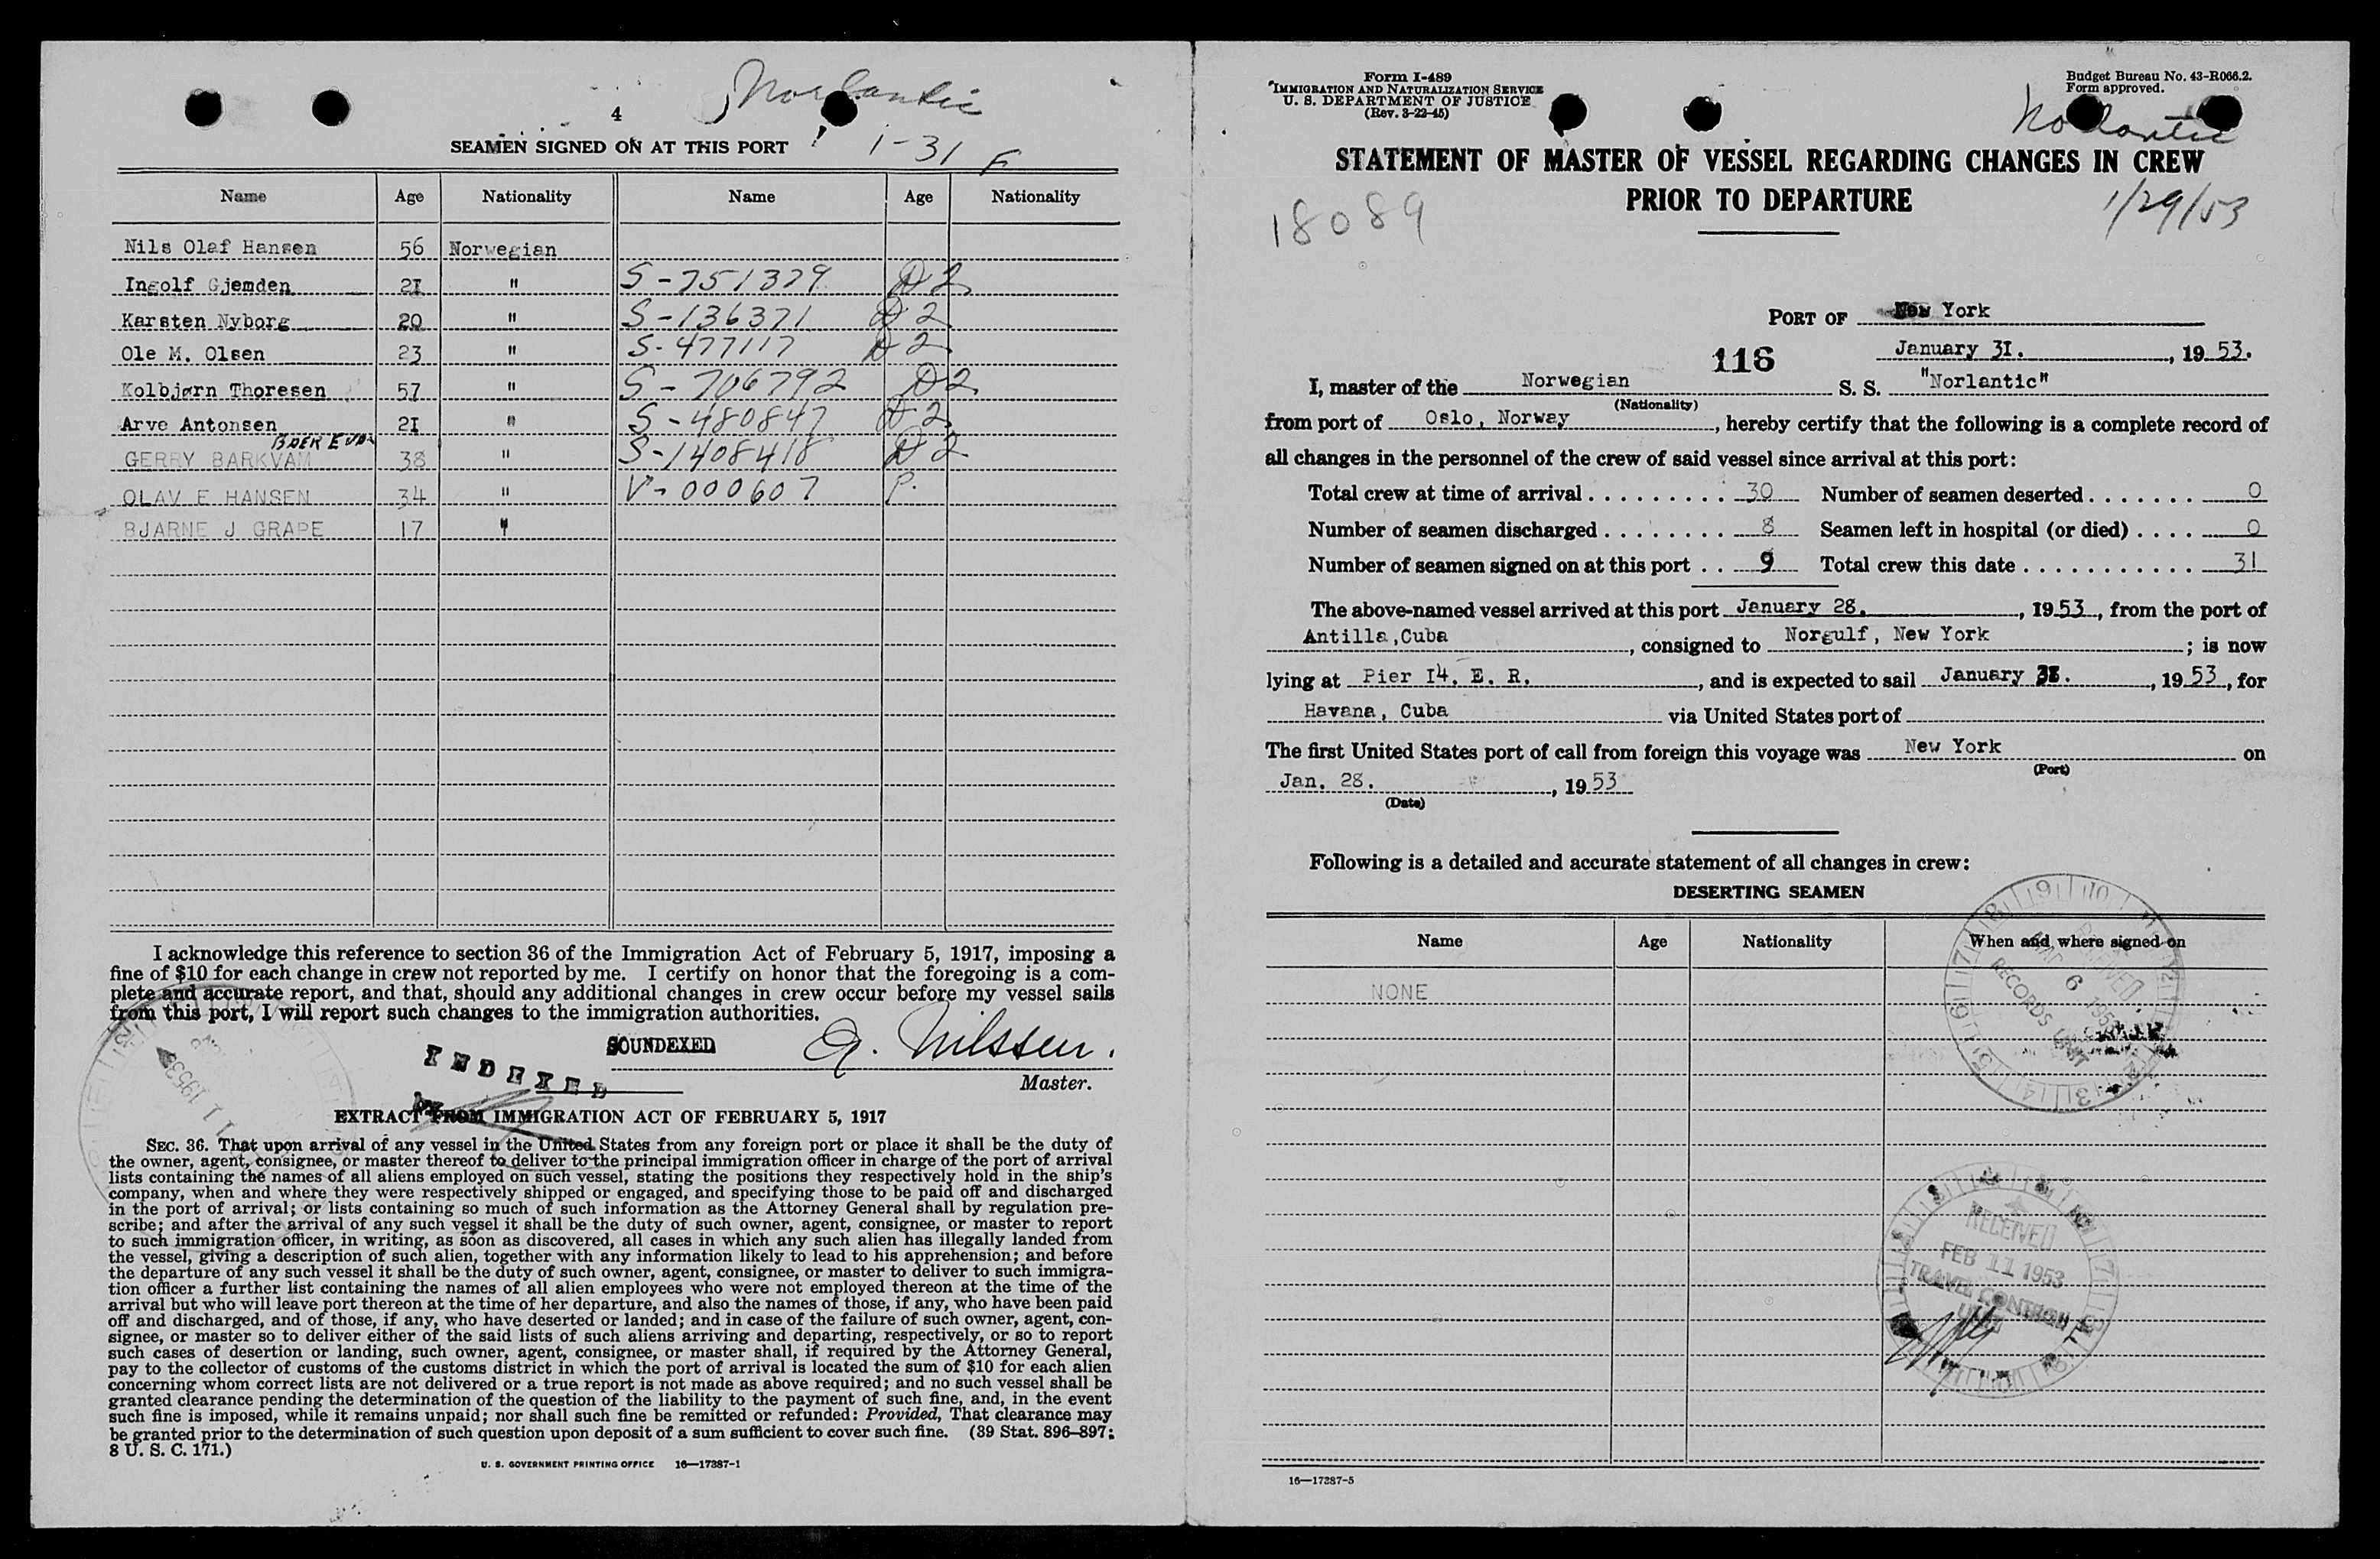 Norlantic
4
SEAMEN SIGNED ON AT THIS PORT
1-31 F
Name Age Nationality Name Age Nationality
Nils Olaf Hansen 56 Norwegian
Ingolf Gjemden 21 " S-751379 D2
Karsten Nyborg 20 " S-136371 D2
Ole M. Olsen 23 " S-477117 D2
Kolbjørn Thoresen 57 " S-706792 D2
Arve Antonsen 21 " S-480847 D2
GERRY BARKVAM 38 " S-1408418 D2
OLAV E HANSEN 34 " V-000607 P.
BJARNE J GRAPE 17 "
I acknowledge this reference to section 36 of the Immigration Act of February 5, 1917, imposing a
fine of $10 for each change in crew not reported by me. I certify on honor that the foregoing is a com-
plete and accurate report, and that, should any additional changes in crew occur before my vessel sails
from this port, I will report such changes to the immigration authorities.
SOUNDEXED
A. Nilssen.
INDEXED
Master.
EXTRACT FROM IMMIGRATION ACT OF FEBRUARY 5, 1917
SEC. 36. That upon arrival of any vessel in the United States from any foreign port or place it shall be the duty of
the owner, agent, consignee, or master thereof to deliver to the principal immigration officer in charge of the port of arrival
lists containing the names of all aliens employed on such vessel, stating the positions they respectively hold in the ship's
company, when and where they were respectively shipped or engaged, and specifying those to be paid off and discharged
in the port of arrival; or lists containing so much of such information as the Attorney General shall by regulation pre-
scribe; and after the arrival of any such vessel it shall be the duty of such owner, agent, consignee, or master to report
to such immigration officer, in writing, as soon as discovered, all cases in which any such alien has illegally landed from
the vessel, giving a description of such alien, together with any information likely to lead to his apprehension; and before
the departure of any such vessel it shall be the duty of such owner, agent, consignee, or master to deliver to such immigra-
tion officer a further list containing the names of all alien employees who were not employed thereon at the time of the
arrival but who will leave port thereon at the time of her departure, and also the names of those, if any, who have been paid
off and discharged, and of those, if any, who have deserted or landed; and in case of the failure of such owner, agent, con-
signee, or master so to deliver either of the said lists of such aliens arriving and departing, respectively, or so to report
such cases of desertion or landing, such owner, agent, consignee, or master shall, if required by the Attorney General,
pay to the collector of customs of the customs district in which the port of arrival is located the sum of $10 for each alien
concerning whom correct lists are not delivered or a true report is not made as above required; and no such vessel shall be
granted clearance pending the determination of the question of the liability to the payment of such fine, and, in the event
such fine is imposed, while it remains unpaid; nor shall such fine be remitted or refunded: Provided, That clearance may
be granted prior to the determination of such question upon deposit of a sum sufficient to cover such fine. (39 Stat. 896-897;
8 U. S. C. 171.)
U. S. GOVERNMENT PRINTING OFFICE 16—17387-1
Form I-489
IMMIGRATION AND NATURALIZATION SERVICE
U. S. DEPARTMENT OF JUSTICE
(Rev. 3-22-45)
Budget Bureau No. 43-R066.2.
Form approved.
Norlantic
STATEMENT OF MASTER OF VESSEL REGARDING CHANGES IN CREW
PRIOR TO DEPARTURE
18089
1/29/53
PORT OF New York
116 January 31. , 19 53.
I, master of the Norwegian S. S. "Norlantic"
(Nationality)
from port of Oslo, Norway , hereby certify that the following is a complete record of
all changes in the personnel of the crew of said vessel since arrival at this port:
Total crew at time of arrival . . . . . . . . . 30 Number of seamen deserted . . . . . . . 0
Number of seamen discharged . . . . . . . . 8 Seamen left in hospital (or died) . . . . 0
Number of seamen signed on at this port . . 9 Total crew this date . . . . . . . . . . . 31
The above-named vessel arrived at this port January 28. , 19 53 , from the port of
Antilla, Cuba , consigned to Norgulf, New York ; is now
lying at Pier 14. E. R. , and is expected to sail January 31. , 19 53 , for
Havana, Cuba via United States port of
The first United States port of call from foreign this voyage was New York on
(Port)
Jan. 28. , 19 53
(Date)
Following is a detailed and accurate statement of all changes in crew:
DESERTING SEAMEN
Name Age Nationality When and where signed on
NONE
RECEIVED
MAR 6 1953
RECORDS UNIT
RECEIVED
FEB 11 1953
TRAVEL CONTROL
UNIT
16—17387-5